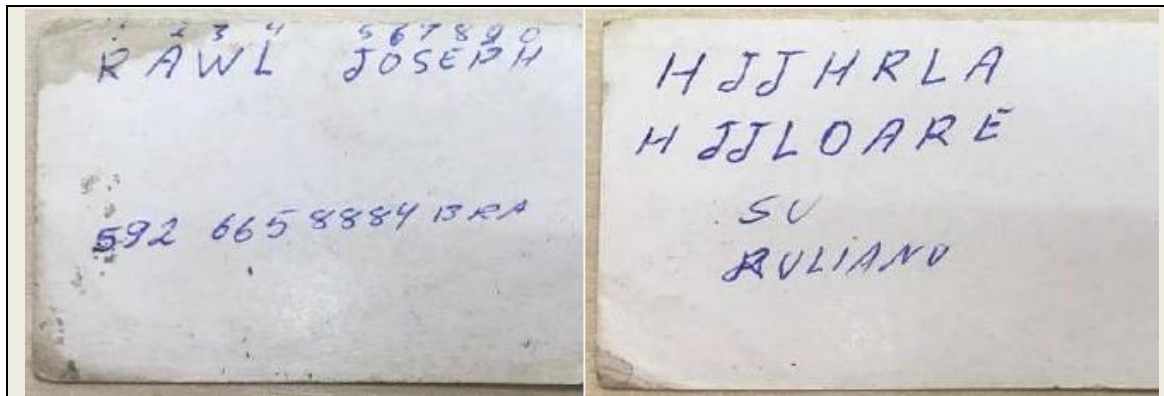 1 2 3 4 5 6 7 8 9 0
RAWL JOSEPH
592 665 8884 BRA
HJJHRLA
HJJLOARE
SU
RULIANO